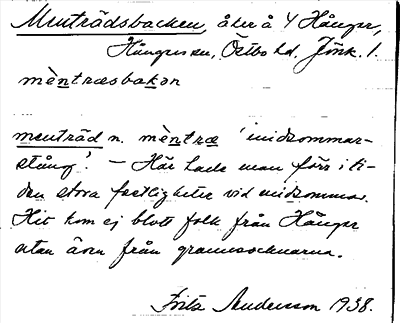 Menträdsbacken, åker å 4 Hånger,
Hångers sn, Östbo hd. Jönk. l.
mèntræsbakən
menträd n. mèntræ 'midsommar-
stång'. – Här hade man förr i ti-
den stora festligheter vid midsommar.
Hit kom ej blott folk från Hånger
utan även från grannsocknarna.
Frits Andersson 1938.